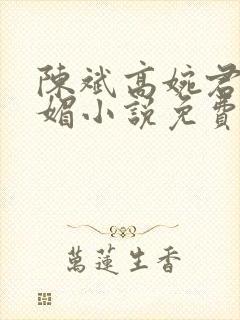 陳斌高婉君
媚小說免費
萬蓮生香